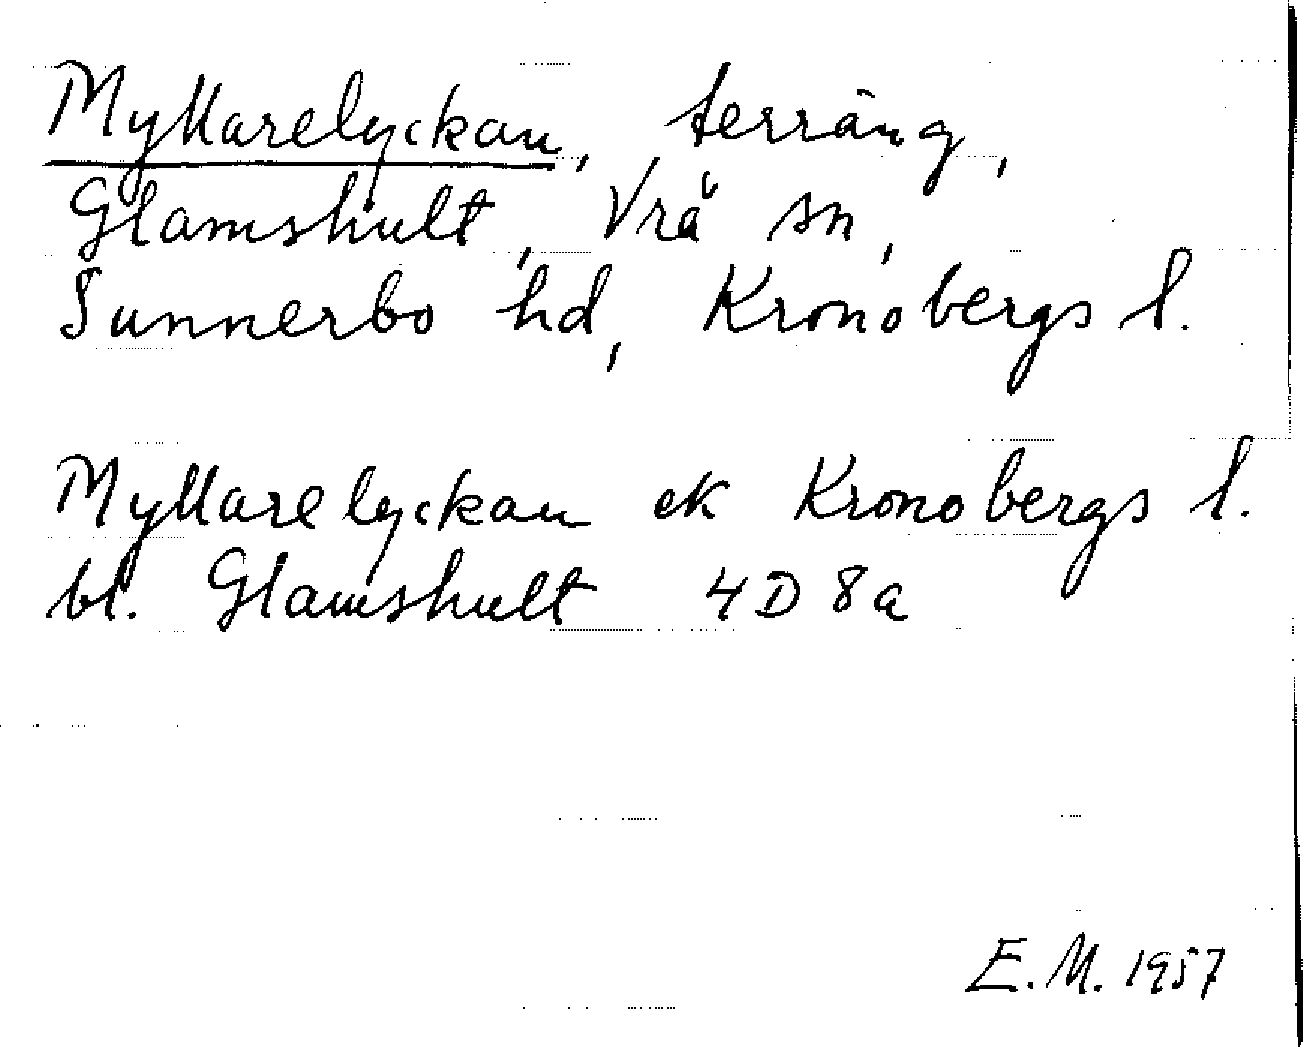 Myllarelyckan, terräng,
Glamshult, Vrå sn,
Sunnerbo hd, Kronobergs l.
Myllarelyckan ek Kronobergs l.
bl. Glamshult 4D8a
E.M. 1957